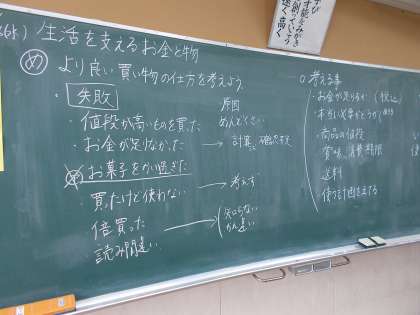 生活を支えるお金と物
め より良い買い物の仕方を考えよう
・失敗
原因
・値段が高いものを買った
めんどくさい
・お金が足りなかった → 計算
お菓子をかい過ぎた
・買ったけど使わない → 考えず
倍買った
読み間違い
知らない
かん違い
○考える事
・お金が足りるか
・本当に必要かどうか
・商品の値段
賞味、消費期限
送料
・使う計画を立てる